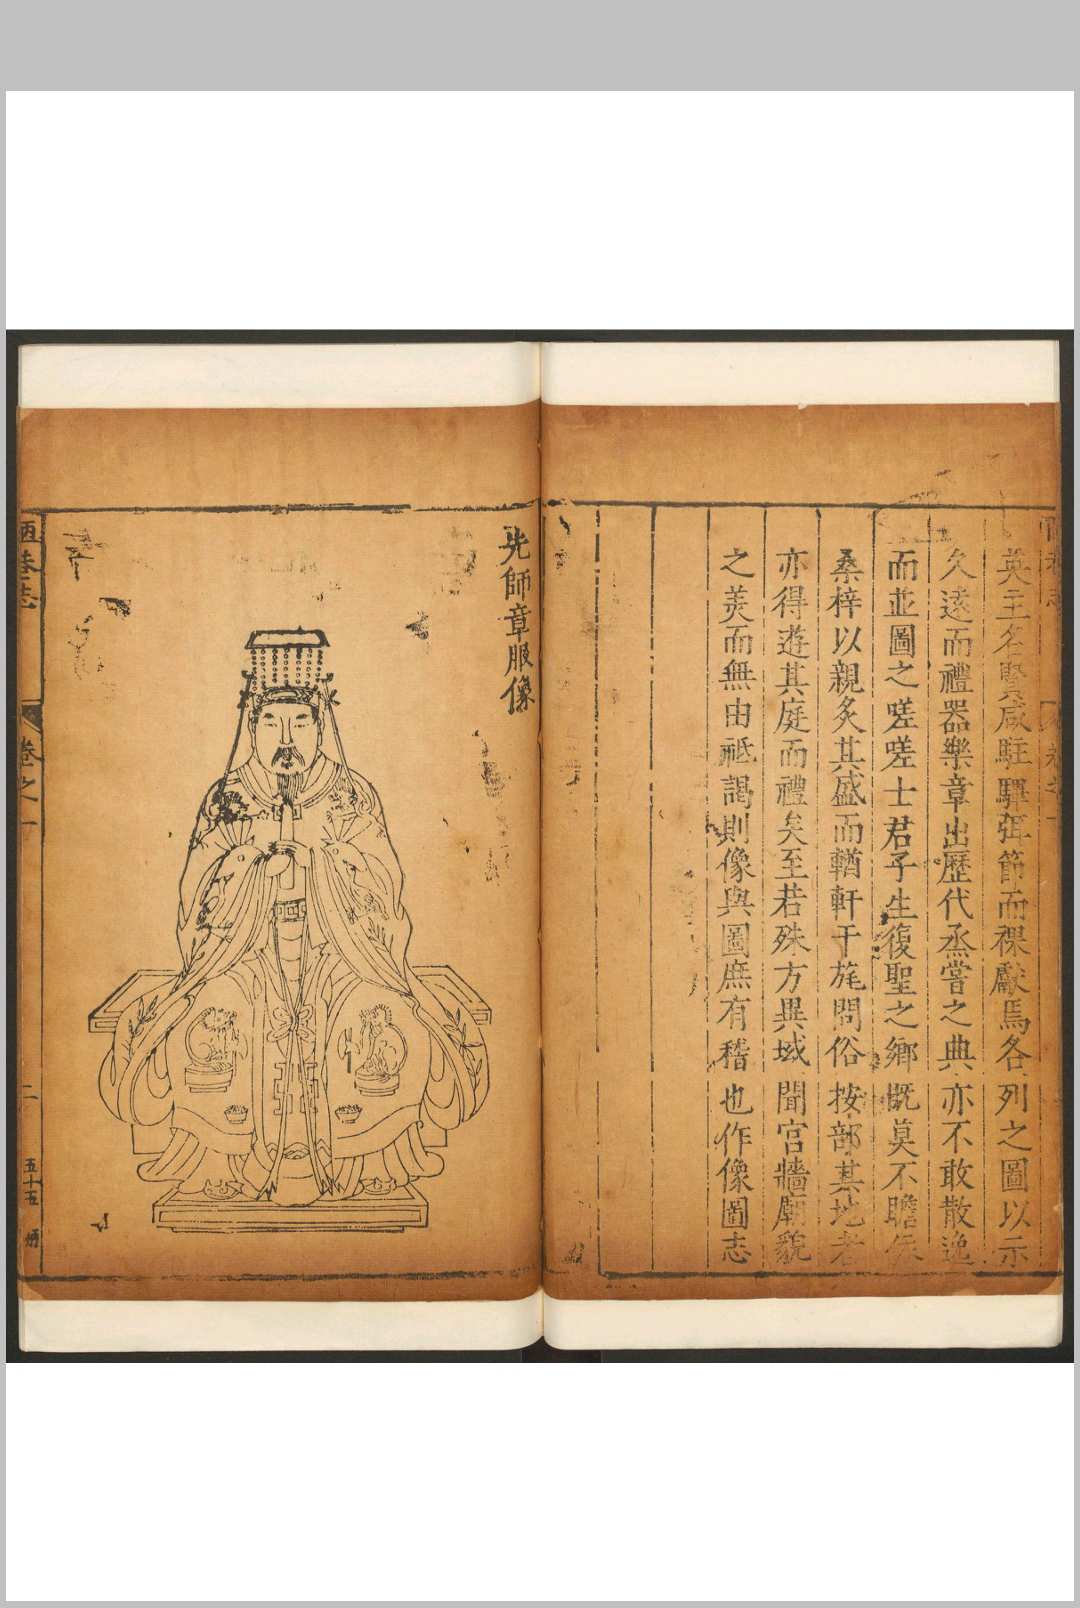 英主名賢咸駐驆弭節而祼獻焉各列之圖以示
久遠而禮器樂章出歷代烝嘗之典亦不敢散逸
而並圖之嗟嗟士君子生復聖之鄉慨莫不瞻依
桑梓以親炙其盛而輶軒干旄問俗按部其地者
亦得遊其庭而禮矣至若殊方異域聞宮牆廟貌
之羙而無由祗謁則像與圖庶有稽也作像圖志
先師章服像
陋巷志
卷之一
二
五十五